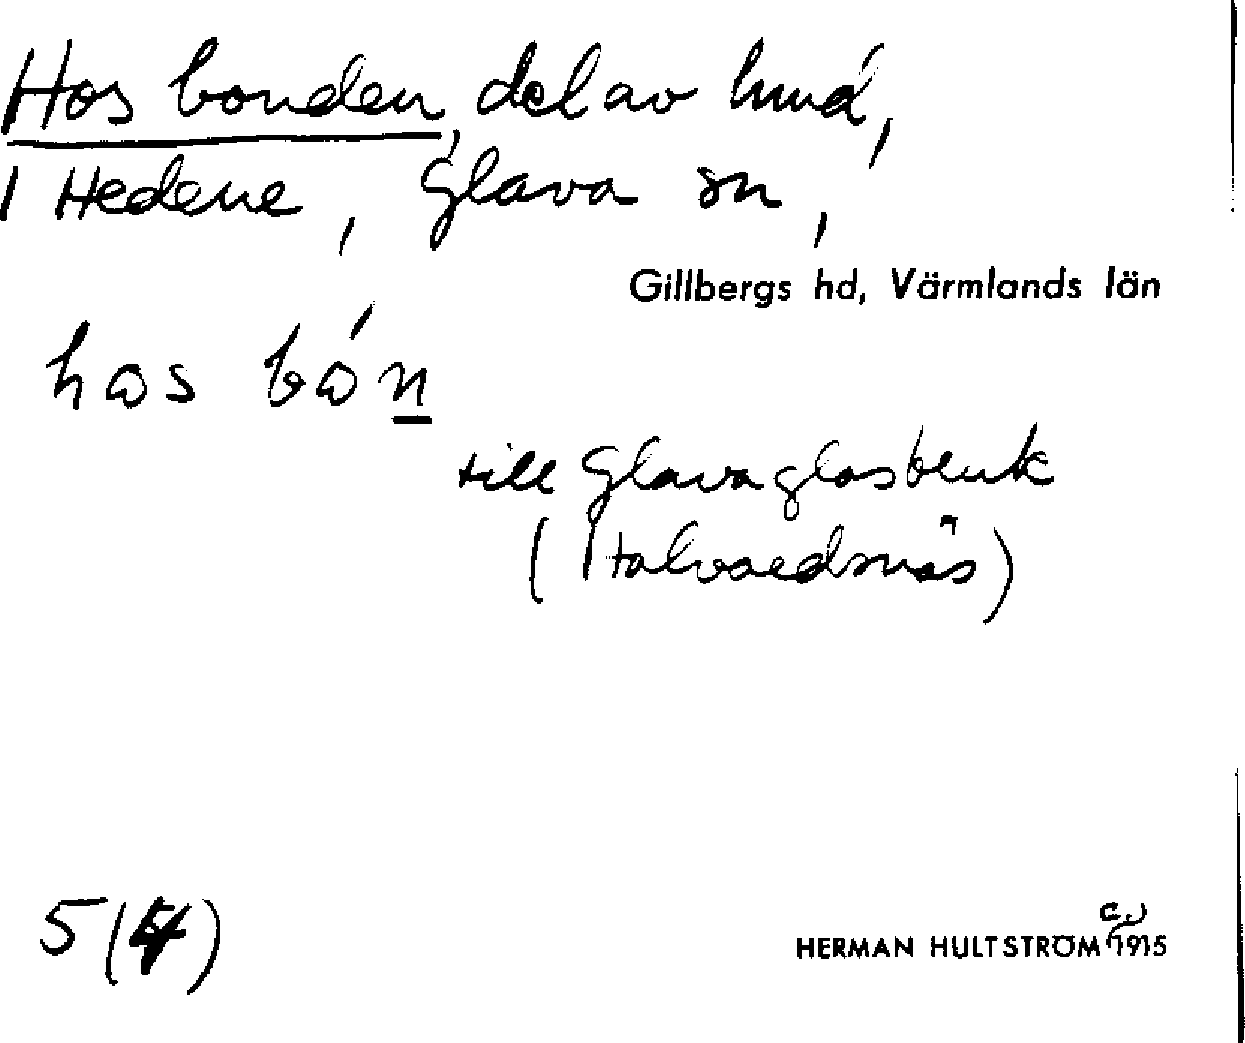 Hos bonden, del av hmd,
1 Hedene, Glava sn,
Gillbergs hd, Värmlands län
hos bón
till Glava glasbruk
(Halvardsnäs)
5 (4)
HERMAN HULTSTRÖM 1915